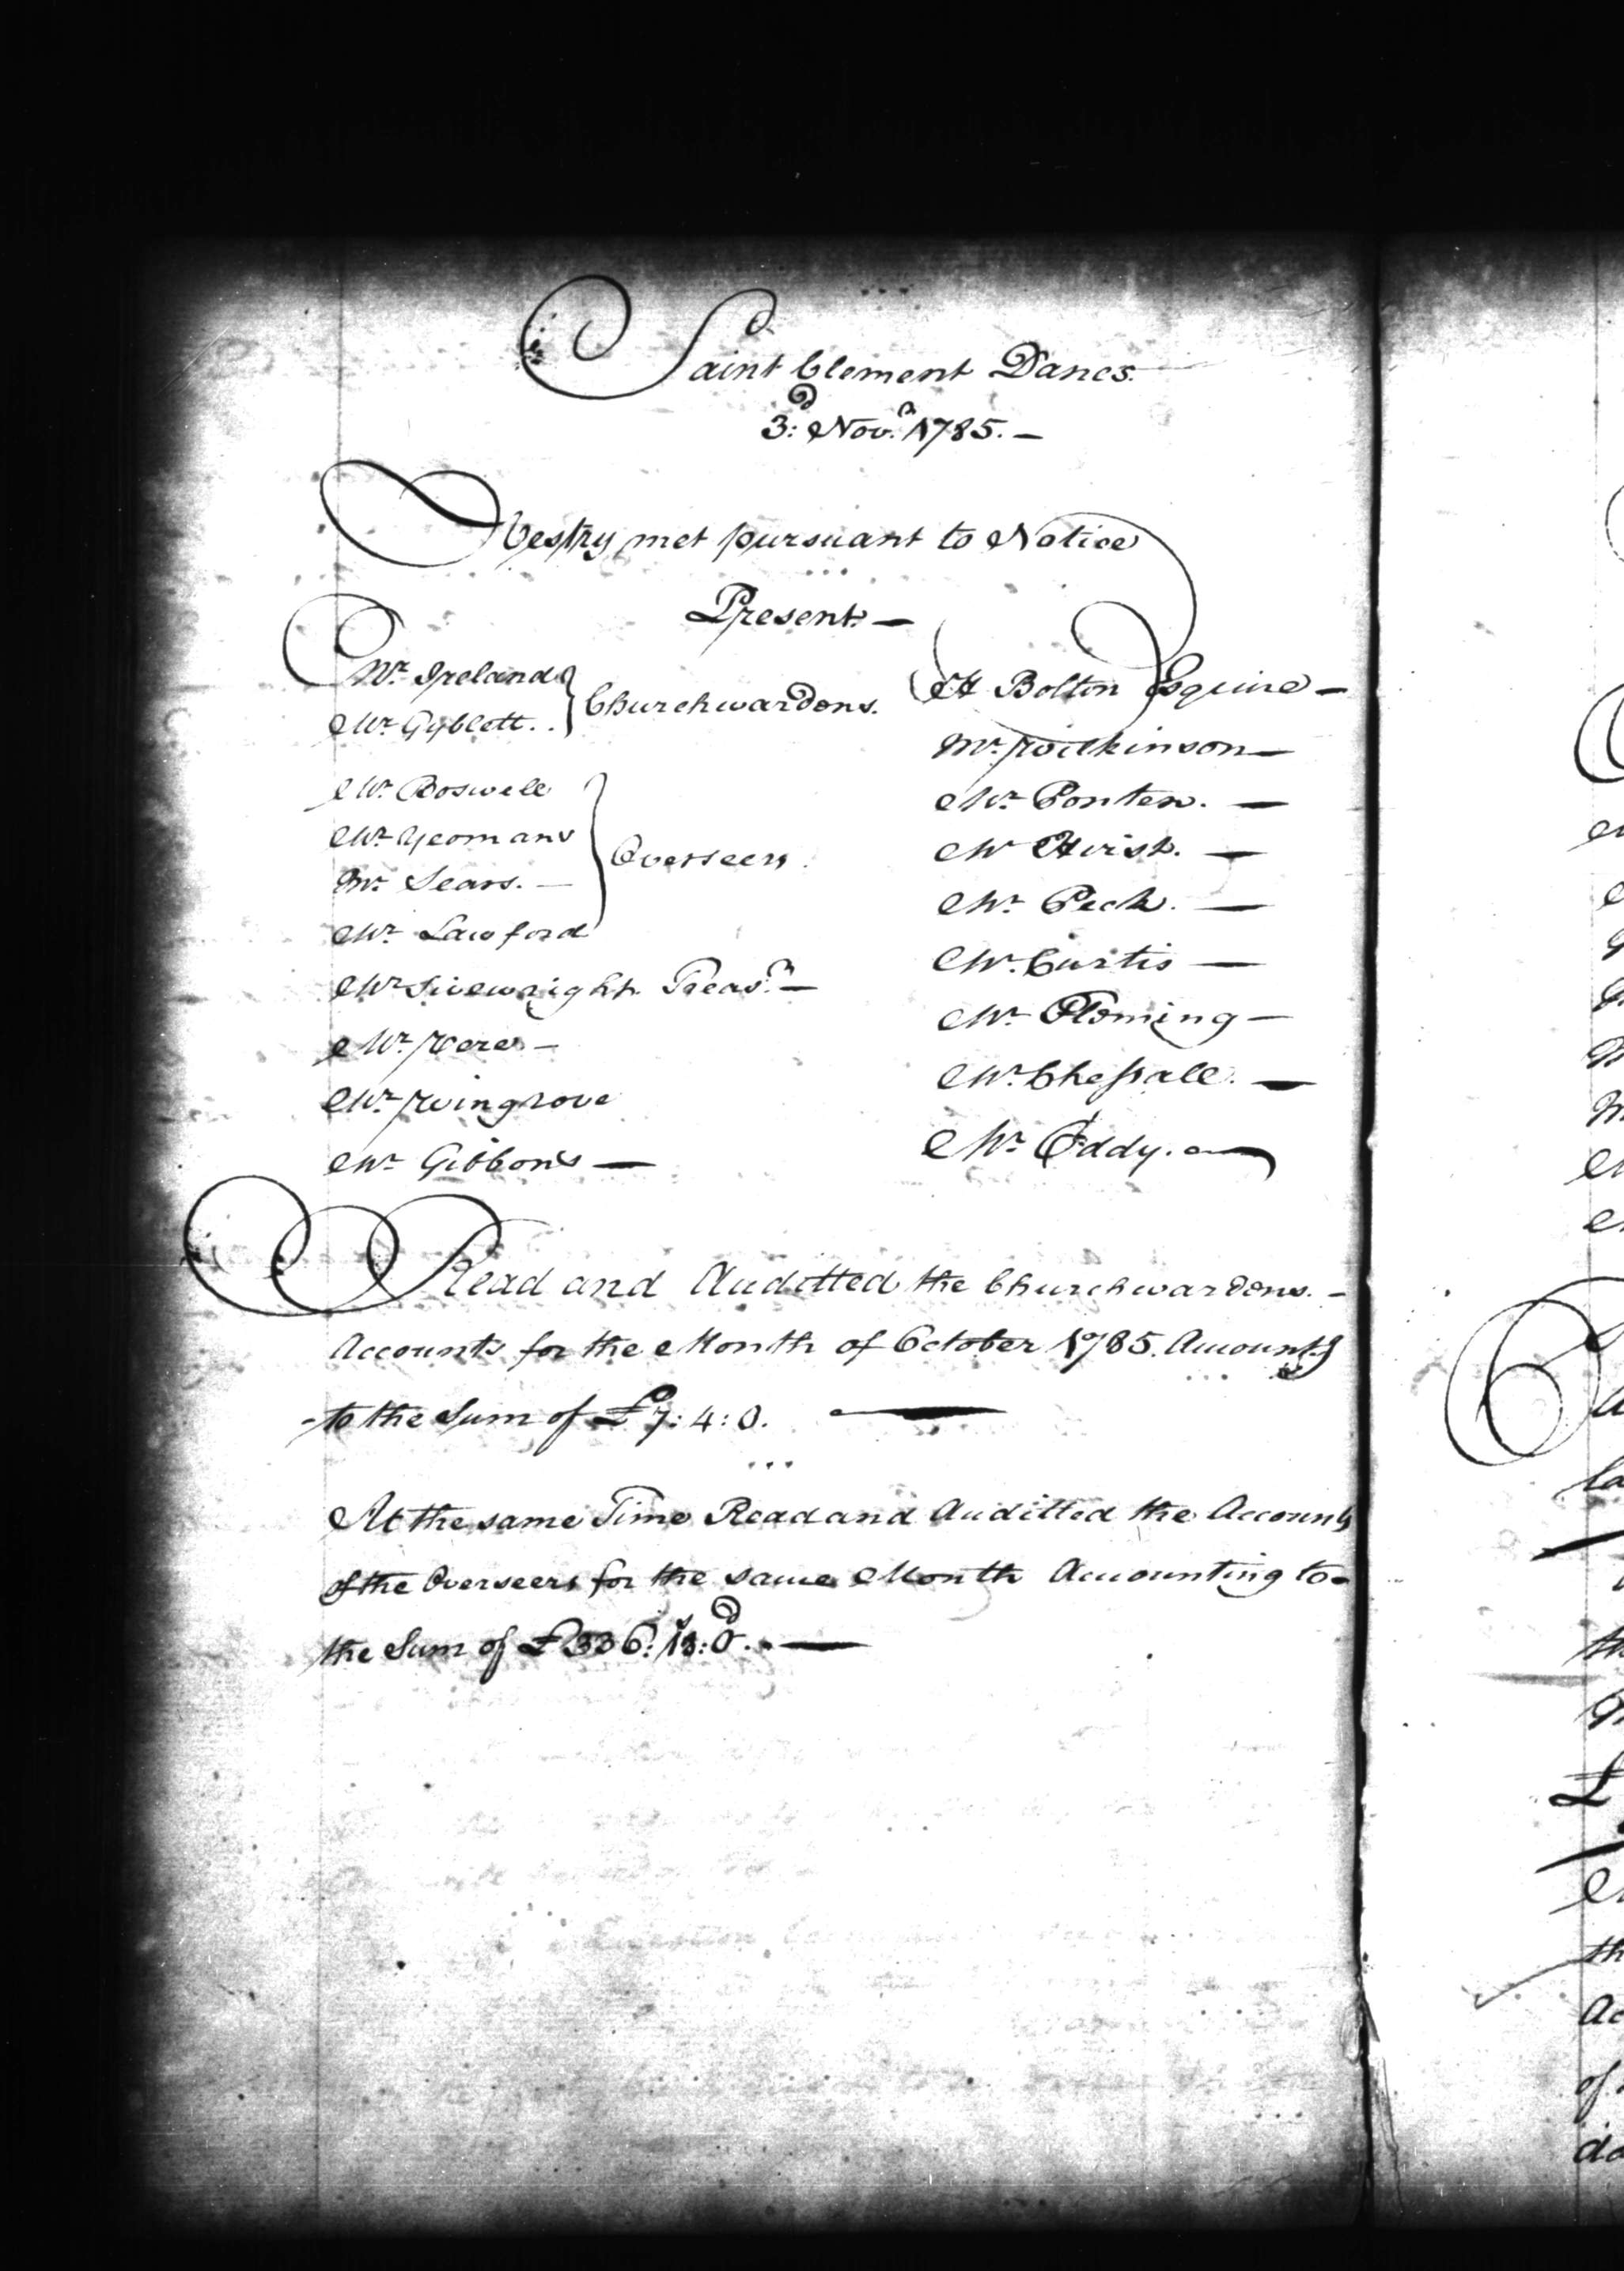 Saint Clement Danes.
3:d Nov:r 1785. —
Vestry met pursuant to Notice
Present. —
Mr. Ireland
Mr. Gyblett. .
Churchwardens.
Mr. Boswell
Mr. Yeomans
Mr. Sears. —
Mr. Lawford
Overseers.
Mr Sivewright Treas.r —
Mr. Vere —
Mr. Wingrove
Mr. Gibbons —
H Bolton Esquire —
Mr. Wilkinson —
Mr. Ponten. —
Mr Hirst. —
Mr. Peck. —
Mr. Curtis —
Mr. Fleming —
Mr. Chessall. —
Mr. Eddy. —
Read and Auditted the Churchwardens. —
Accounts for the Month of October 1785. Amount.g
to the Sum of £7: 4: 0.
At the same Time Read and Auditted the Accounts
of the Overseers for the same Month Amounting to
the Sum of £336: 13: 0.